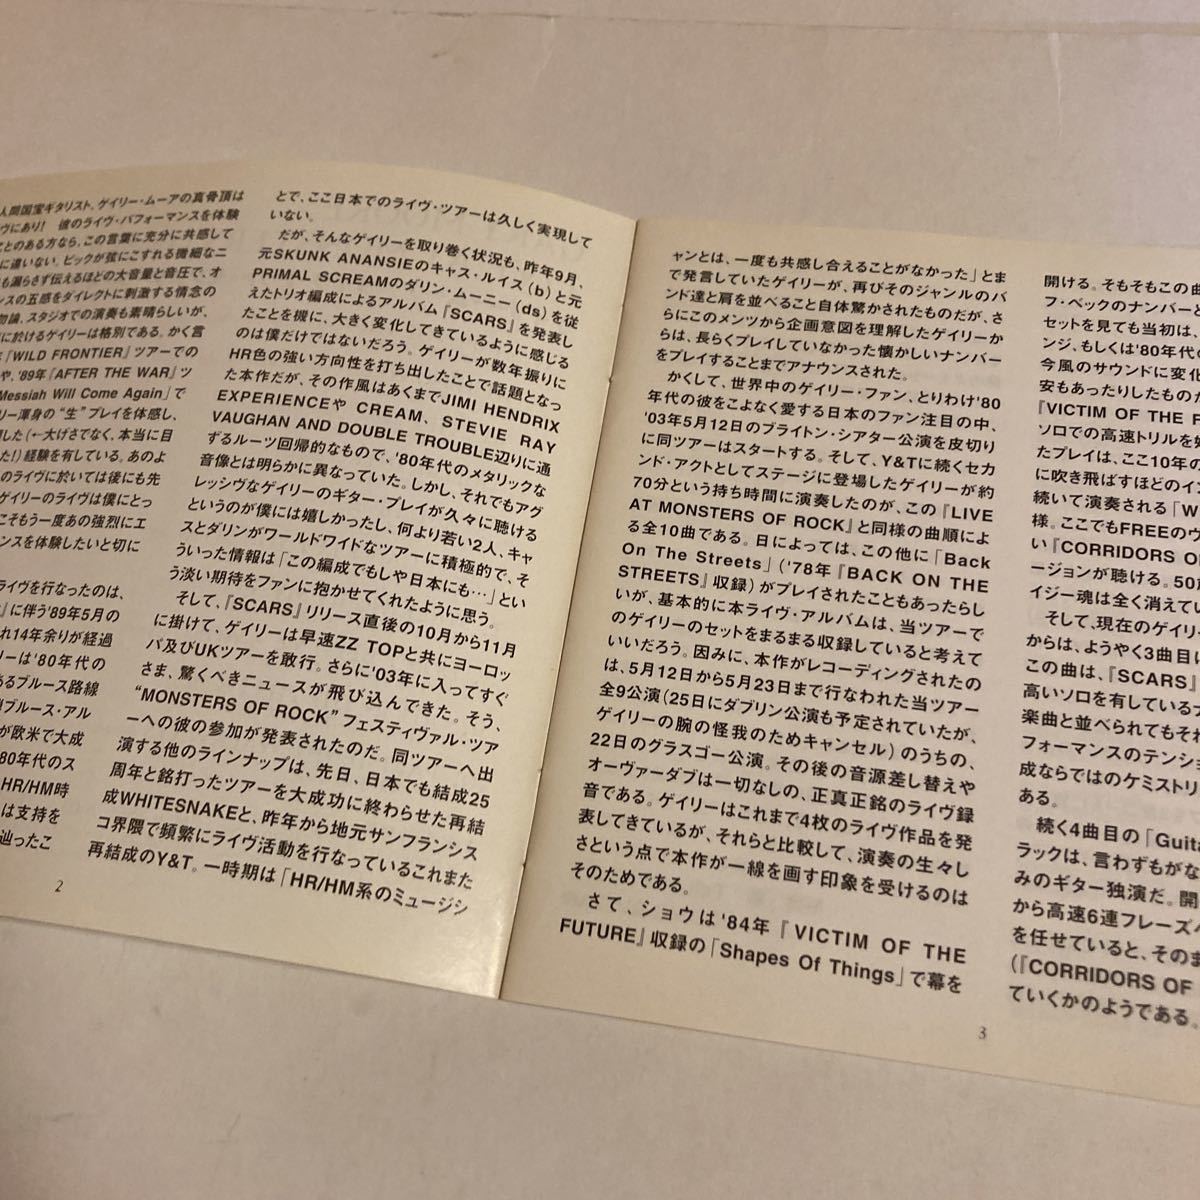 人間国宝ギタリスト、ゲイリー・ムーアの真骨頂は
ヴにあり! 彼のライヴ・パフォーマンスを体験
ことのある方なら、この言葉に充分に共感して
に違いない。ピックが弦にこすれる微細なニ
も漏らさず伝えるほどの大音量と音圧で、オ
ンスの五感をダイレクトに刺激する情念の
勿論、スタジオでの演奏も素晴らしいが、
に於けるゲイリーは格別である。かく言
『WILD FRONTIER』ツアーでの
や、'89年『AFTER THE WAR』ツ
Messiah Will Come Again」で
リー渾身の“生”プレイを体感し、
した(←大げさでなく、本当に目
た!)経験を有している。あのよ
のライヴに於いては後にも先
ゲイリーのライヴは僕にとっ
こそもう一度あの強烈にエ
ンスを体験したいと切に
ライヴを行なったのは、
』に伴う'89年5月の
れ14年余りが経過
リーは'80年代の
あるブルース路線
ブルース・アル
が欧米で大成
80年代のス
HR/HM時
は支持を
辿ったこ
2
とで、ここ日本でのライヴ・ツアーは久しく実現して
いない。
だが、そんなゲイリーを取り巻く状況も、昨年9月、
元SKUNK ANANSIEのキャス・ルイス(b)と元
PRIMAL SCREAMのダリン・ムーニー(ds)を従
えたトリオ編成によるアルバム『SCARS』を発表し
たことを機に、大きく変化してきているように感じる
のは僕だけではないだろう。ゲイリーが数年振りに
HR色の強い方向性を打ち出したことで話題となっ
た本作だが、その作風はあくまでJIMI HENDRIX
EXPERIENCEや CREAM、STEVIE RAY
VAUGHAN AND DOUBLE TROUBLE辺りに通
ずるルーツ回帰的なもので、'80年代のメタリックな
音像とは明らかに異なっていた。しかし、それでもアグ
レッシヴなゲイリーのギター・プレイが久々に聴ける
というのが僕には嬉しかったし、何より若い2人、キャ
スとダリンがワールドワイドなツアーに積極的で、そ
ういった情報は「この編成でもしや日本にも…」とい
う淡い期待をファンに抱かせてくれたように思う。
そして、『SCARS』リリース直後の10月から11月
に掛けて、ゲイリーは早速ZZ TOPと共にヨーロッ
パ及びUKツアーを敢行。さらに'03年に入ってすぐ
さま、驚くべきニュースが飛び込んできた。そう、
“MONSTERS OF ROCK”フェスティヴァル・ツア
ーへの彼の参加が発表されたのだ。同ツアーへ出
演する他のラインナップは、先日、日本でも結成25
周年と銘打ったツアーを大成功に終わらせた再結
成WHITESNAKEと、昨年から地元サンフランシス
コ界隈で頻繁にライヴ活動を行なっているこれまた
再結成のY&T。一時期は「HR/HM系のミュージシ
ャンとは、一度も共感し合えることがなかった」とま
で発言していたゲイリーが、再びそのジャンルのバ
ンド達と肩を並べること自体驚かされたものだが、さ
らにこのメンツから企画意図を理解したゲイリーか
らは、長らくプレイしていなかった懐かしいナンバー
をプレイすることまでアナウンスされた。
かくして、世界中のゲイリー・ファン、とりわけ'80
年代の彼をこよなく愛する日本のファン注目の中、
'03年5月12日のブライトン・シアター公演を皮切り
に同ツアーはスタートする。そして、Y&Tに続くセカ
ンド・アクトとしてステージに登場したゲイリーが約
70分という持ち時間に演奏したのが、この『LIVE
AT MONSTERS OF ROCK』と同様の曲順によ
る全10曲である。日によっては、この他に「Back
On The Streets」('78年『BACK ON THE
STREETS』収録)がプレイされたこともあったらし
いが、基本的に本ライヴ・アルバムは、当ツアーで
のゲイリーのセットをまるまる収録していると考えて
いいだろう。因みに、本作がレコーディングされたの
は、5月12日から5月23日まで行なわれた当ツアー
全9公演(25日にダブリン公演も予定されていたが、
ゲイリーの腕の怪我のためキャンセル)のうちの、
22日のグラスゴー公演。その後の音源差し替えや
オーヴァーダブは一切なしの、正真正銘のライヴ録
音である。ゲイリーはこれまで4枚のライヴ作品を発
表してきているが、それらと比較して、演奏の生々し
さという点で本作が一線を画す印象を受けるのは
そのためである。
さて、ショウは'84年『VICTIM OF THE
FUTURE』収録の「Shapes Of Things」で幕を
3
開ける。そもそもこの曲
フ・ベックのナンバーと
セットを見ても当初は、
ンジ、もしくは'80年代の
今風のサウンドに変化
安もあったりしたものだ
『VICTIM OF THE F
ソロでの高速トリルを
たプレイは、ここ10年の
に吹き飛ばすほどのイン
続いて演奏される「W
様。ここでもFREEのヴ
い『CORRIDORS O
ージョンが聴ける。50
イジー魂は全く消えてい
そして、現在のゲイリ
からは、ようやく3曲目に
この曲は、『SCARS』
高いソロを有しているナ
楽曲と並べられてもそれ
フォーマンスのテンショ
成ならではのケミストリ
ある。
続く4曲目の「Guita
ラックは、言わずもがな
みのギター独演だ。開
から高速6連フレーズへ
を任せていると、そのま
(『CORRIDORS OF
ていくかのようである。